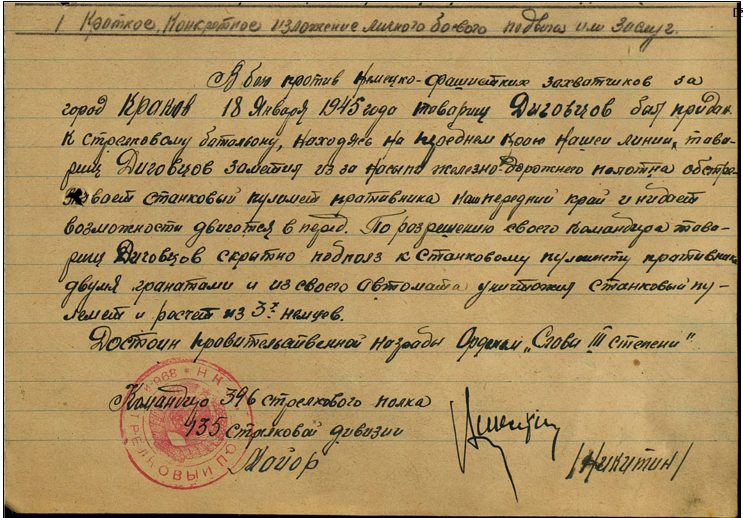 1 Краткое, Конкретное изложение личного боевого подвига или заслуг.
В бою против Немецко-фашистких захватчиков за
город Краков 18 Января 1945 года товарищ Диговцов был придан
к стрелковому батальону, находясь на переднем краю нашей линии, това-
рищ Диговцов заметил из за насыпи железно-дорожнего полотна обстре-
ливает станковый пулемет противника наш передний край и нидает
возможности двиготся в перед. По розрешению своего командира това-
рищ Диговцов скрытно подполз к станковому пулемету противника
двумя гранатами и из своего автомата уничтожил станковый пу-
лемет и расчет из 3х немцев.
Достоин правительственной награды Орденом "Слава III степени".
Командир 396 стрелкового полка
135 стрелковой дивизии
Майор
/Никитин/
396-й * НК
СТРЕЛКОВЫЙ ПО